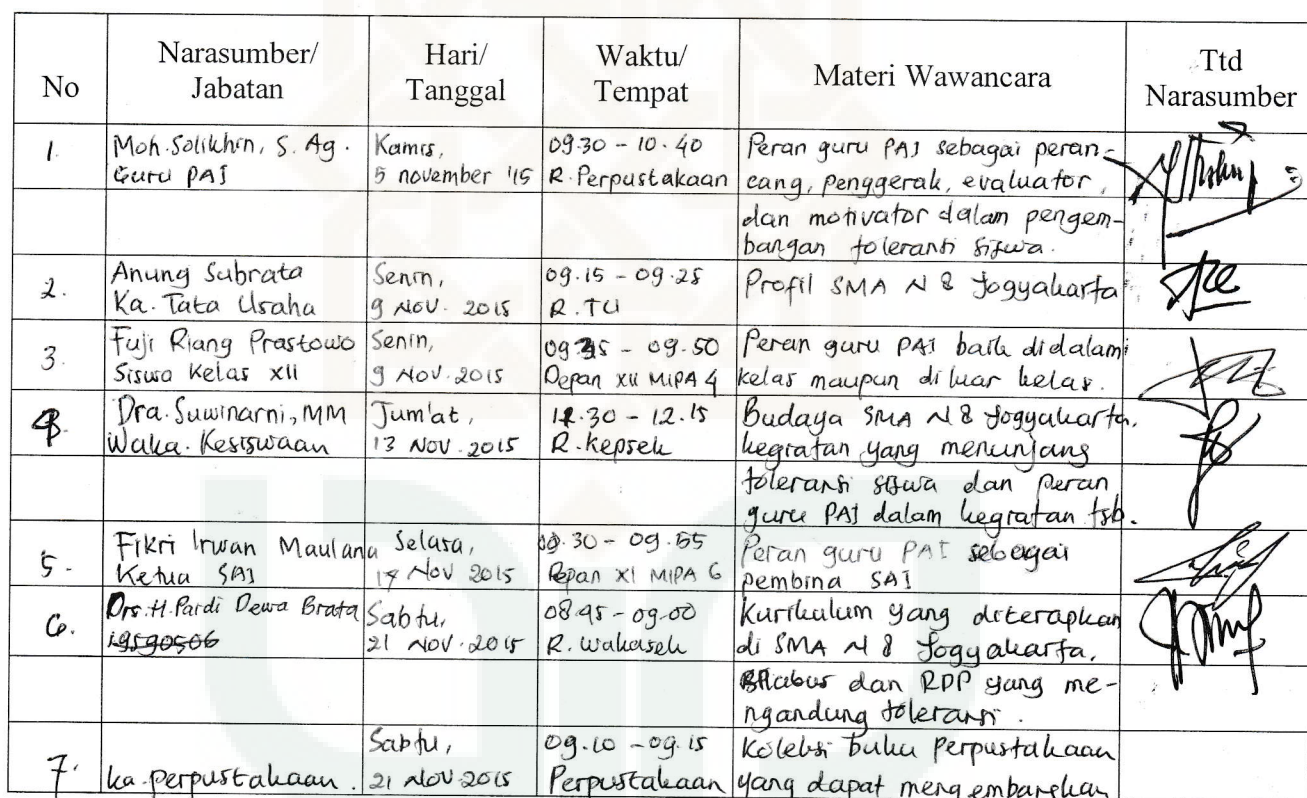 No
Narasumber/
Jabatan
Hari/
Tanggal
Waktu/
Tempat
Materi Wawancara
Ttd
Narasumber
1.
Moh. Solikhin, S. Ag.
Guru PAI
Kamis,
5 november '15
09.30 - 10.40
R. Perpustakaan
Peran guru PAI sebagai peran-
cang, penggerak, evaluator,
dan motivator dalam pengem-
bangan toleransi siswa.
2.
Anung Subrata
Ka. Tata Usaha
Senin,
9 Nov. 2015
09.15 - 09.25
R. TU
Profil SMA N 8 Yogyakarta
3.
Fuji Riang Prastowo
Siswa Kelas XII
Senin,
9 Nov. 2015
- 09.50
Depan XII MIPA 4
Peran guru PAI baik didalam
kelas maupun di luar kelas.
4.
Dra. Suwinarni, MM
Waka. Kesiswaan
Jum'at,
13 Nov. 2015
- 12.15
R. Kepsek
Budaya SMA N 8 Yogyakarta,
kegiatan yang menunjang
toleransi siswa dan peran
guru PAI dalam kegiatan tsb.
5.
Fikri Irwan Maulana
Ketua SAI
Selasa,
17 Nov 2015
- 09.55
Depan XI MIPA 6
Peran guru PAI sebagai
pembina SAI
6.
Drs. H. Pardi Dewa Brata
19590506
Sabtu,
21 Nov. 2015
08.45 - 09.00
R. Wakasek
Kurikulum yang diterapkan
di SMA N 8 Yogyakarta,
Silabus dan RPP yang me-
ngandung toleransi.
7.
ka. perpustakaan.
Sabtu,
21 Nov 2015
09.10 - 09.15
Perpustakaan
Koleksi buku Perpustakaan
yang dapat mengembangkan